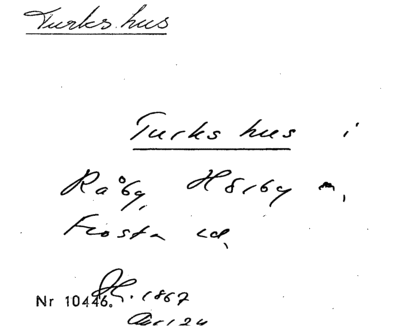 Turks hus
Turks hus i
Råby, Hörby n,
Frosta hd,
Nr 10446. 1867